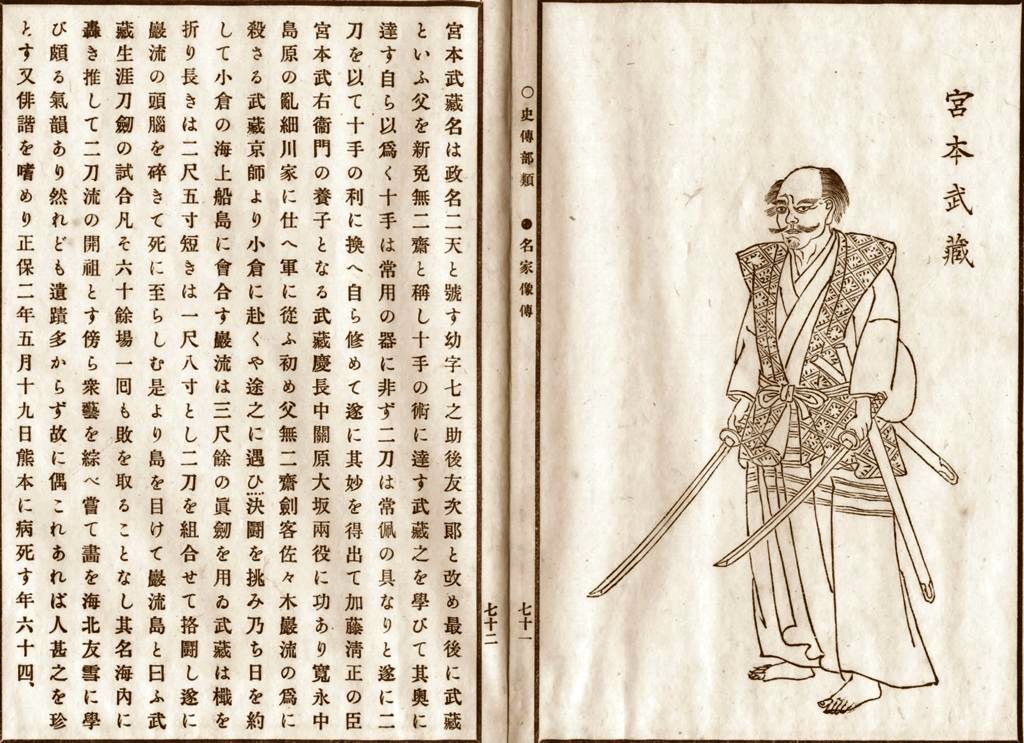 宮本武藏
○史傳部類 ●名家像傳
七十一
七十二
宮本武藏名は政名二天と號す幼字七之助後友次郞と改め最後に武藏
といふ父を新免無二齋と稱し十手の術に達す武藏之を學びて其奧に
達す自ら以爲く十手は常用の器に非ず二刀は常佩の具なりと遂に二
刀を以て十手の利に換へ自ら修めて遂に其妙を得出て加藤淸正の臣
宮本武右衞門の養子となる武藏慶長中關原大坂兩役に功あり寬永中
島原の亂細川家に仕へ軍に從ふ初め父無二齋劍客佐々木巖流の爲に
殺さる武藏京師より小倉に赴くや途之に遇ひ決鬪を挑み乃ち日を約
して小倉の海上船島に會合す巖流は三尺餘の眞劒を用ゐ武藏は檝を
折り長きは二尺五寸短きは一尺八寸とし二刀を組合せて挌鬪し遂に
巖流の頭腦を碎きて死に至らしむ是より島を目けて巖流島と曰ふ武
藏生涯刀劒の試合凡そ六十餘場一囘も敗を取ることなし其名海內に
轟き推して二刀流の開祖とす傍ら衆藝を綜べ嘗て畵を海北友雪に學
び頗る氣韻あり然れども遺蹟多からず故に偶これあれば人甚之を珍
とす又俳諧を嗜めり正保二年五月十九日熊本に病死す年六十四、